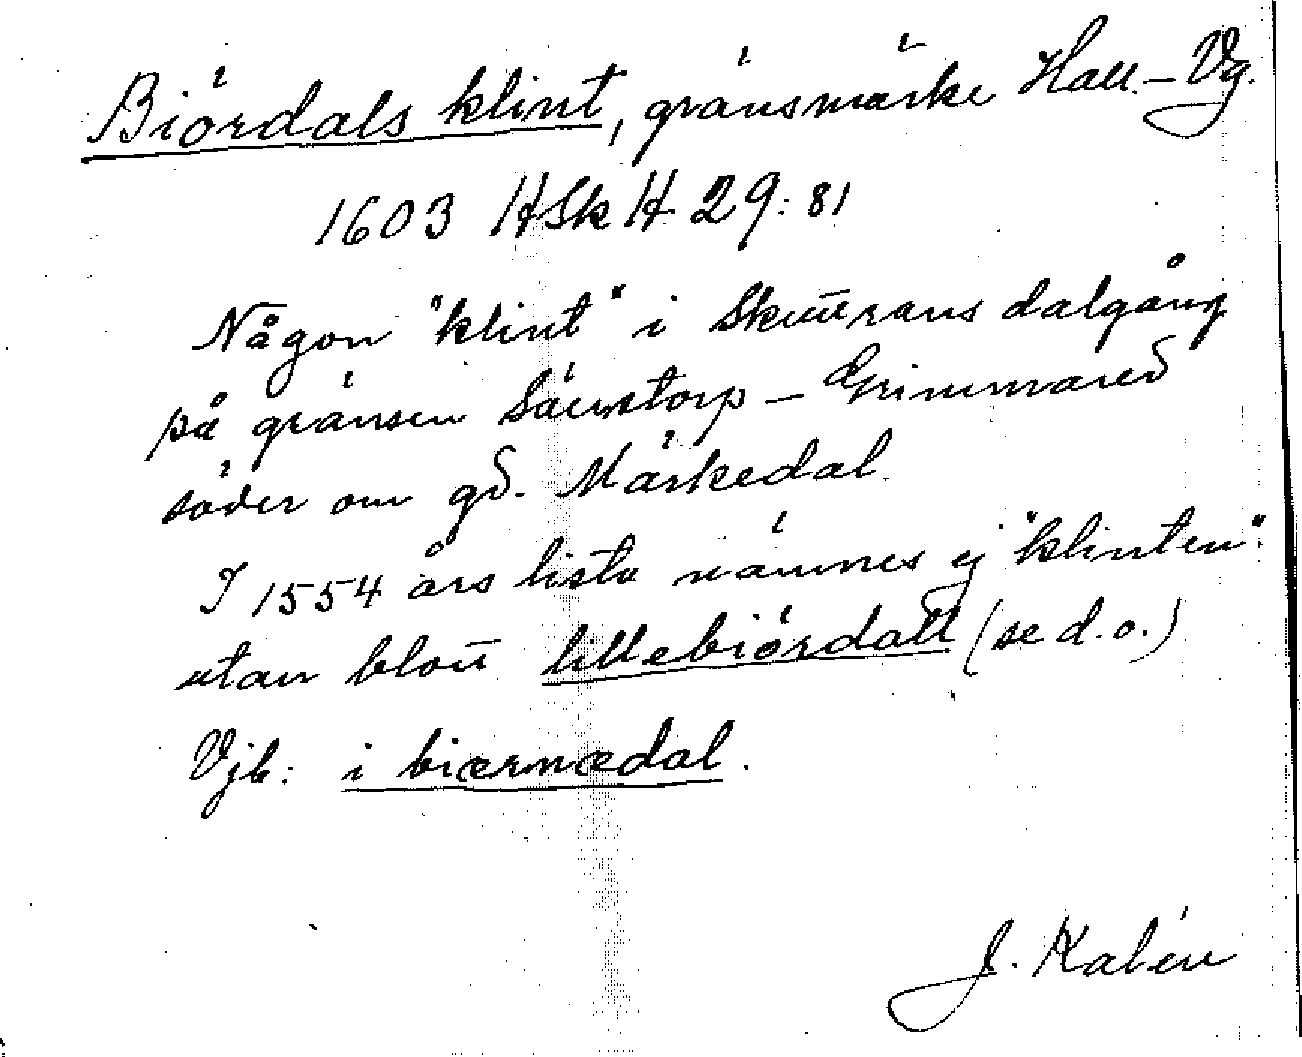 Biördals klint, gränsmärke Hall.–Vg.
1603 HSkH 29:81
Någon "klint" i Skuttrans dalgång
på gränsen Säenstorp – Grimmared
söder om gd. Märkedal.
I 1554 års lista nämnes ej "klinten"
utan blott lillebiördall (se d.o.)
Vjb: i biærnædal.
J. Kalén